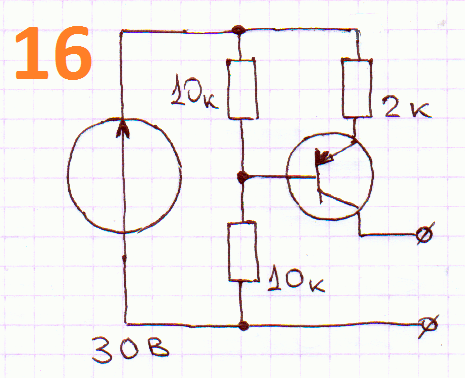 16
10к
2к
10к
30В